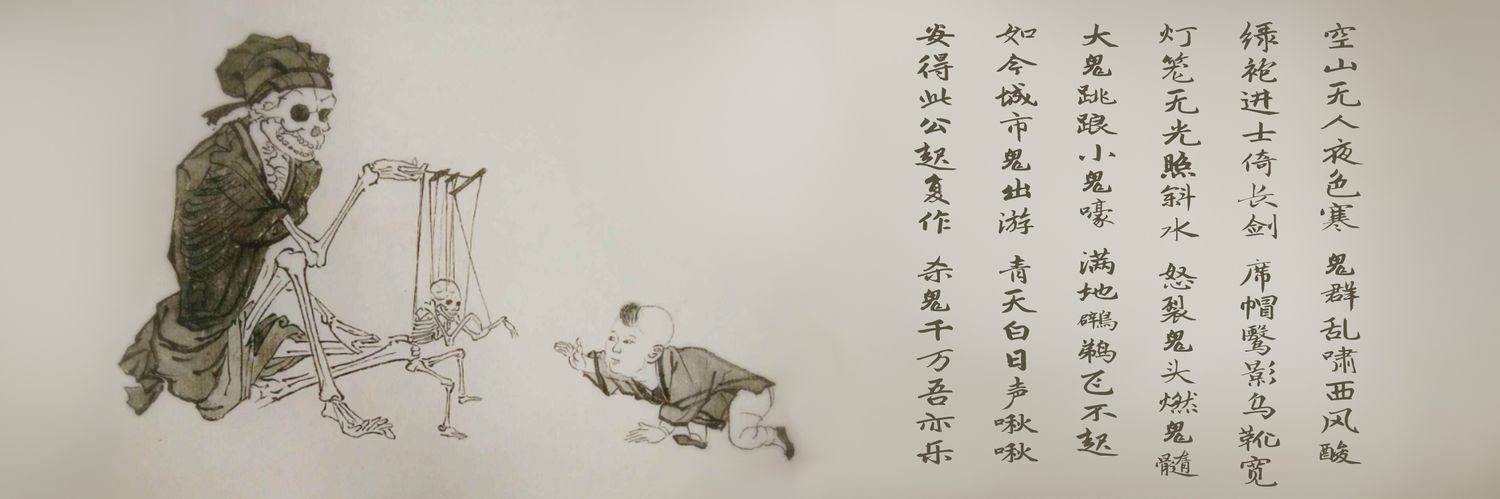 空山无人夜色寒 鬼群乱啸西风酸
绿袍进士倚长剑 席帽鹥影乌靴宽
灯笼无光照斜水 怒裂鬼头燃鬼髓
大鬼跳踉小鬼嚎 满地鸊鹈飞不起
如今城市鬼出游 青天白日声啾啾
安得此公起复作 杀鬼千万吾亦乐